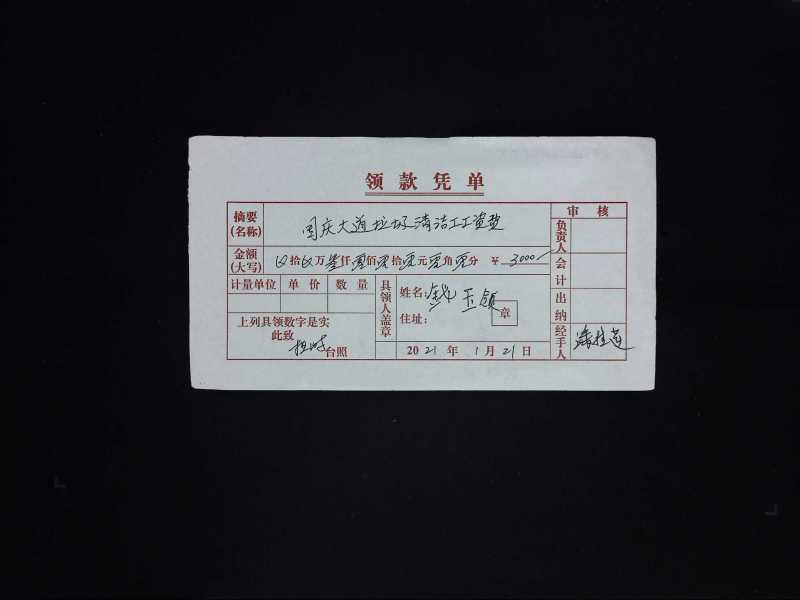 领款凭单
摘要(名称) 国庆大道垃圾清洁工工资费
审核
金额(大写) 拾 万叁仟零佰零拾零元零角零分 ¥3000
负责人
会计
计量单位 单价 数量
具领人盖章
姓名: 钱玉领
住址:
章
出纳
上列具领数字是实
此致
台照
2021年1月21日
经手人 潘桂莲